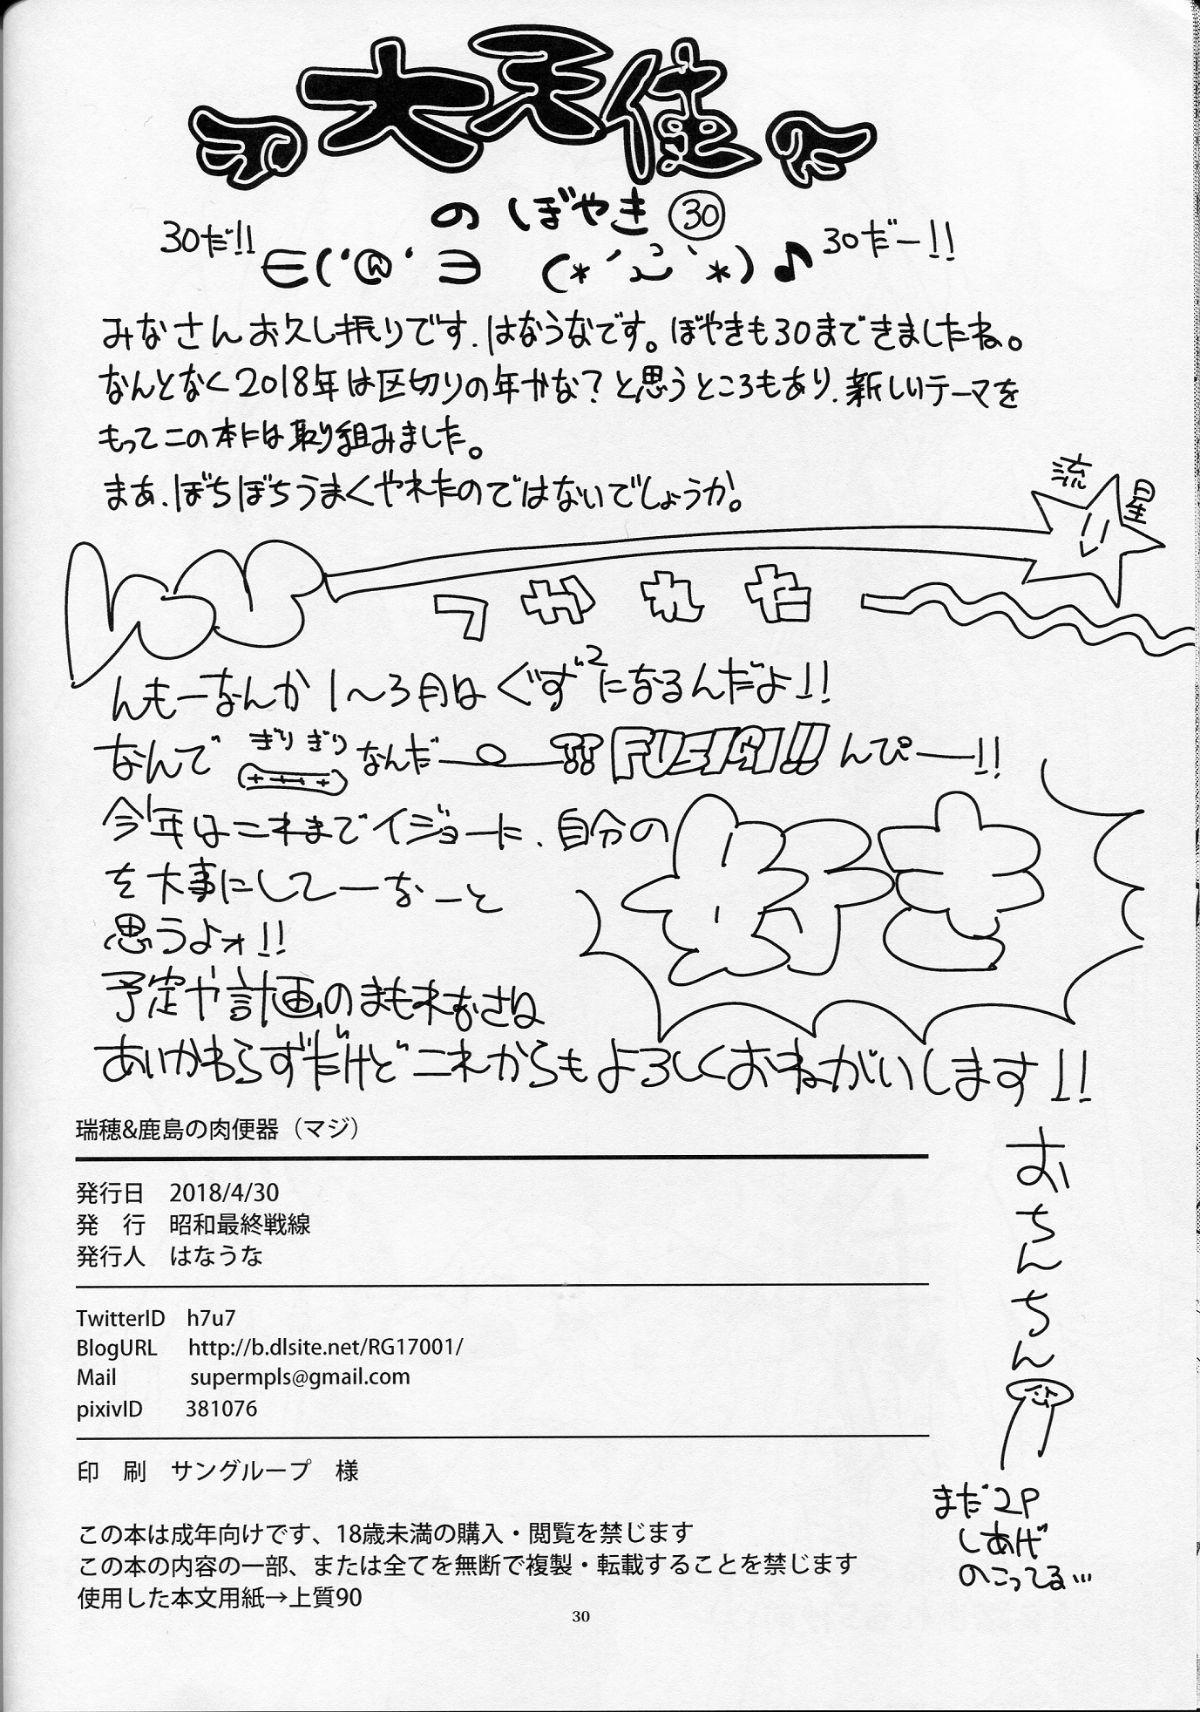 大天使
のぼやき㉚
30だ!! 30だー!!
みなさんお久し振りです.はなうなです。ぼやきも30まできましたね。
なんとなく2018年は区切りの年かな?と思うところもあり.新しいテーマを
もってこの本は取り組みました。
まあ.ぼちぼちうまくやれたのではないでしょうか。
流星
つかれた
んもーなんか1〜3月はぐず²になるんだよ!!
なんでぎりぎりなんだー FUSIGI!! んぴー!!
今年はこれまでイジョーに.自分の
好き
を大事にしてーなーと
思うよォ!!
予定や計画のまもれなさは
あいかわらずだけどこれからもよろしくおねがいします!!
おちんちん
まだ2P
しあげ
のこってる…
瑞穂&鹿島の肉便器（マジ）
発行日 2018/4/30
発　行 昭和最終戦線
発行人 はなうな
TwitterID h7u7
BlogURL http://b.dlsite.net/RG17001/
Mail supermpls@gmail.com
pixivID 381076
印　刷 サングループ　様
この本は成年向けです、18歳未満の購入・閲覧を禁じます
この本の内容の一部、または全てを無断で複製・転載することを禁じます
使用した本文用紙→上質90
30